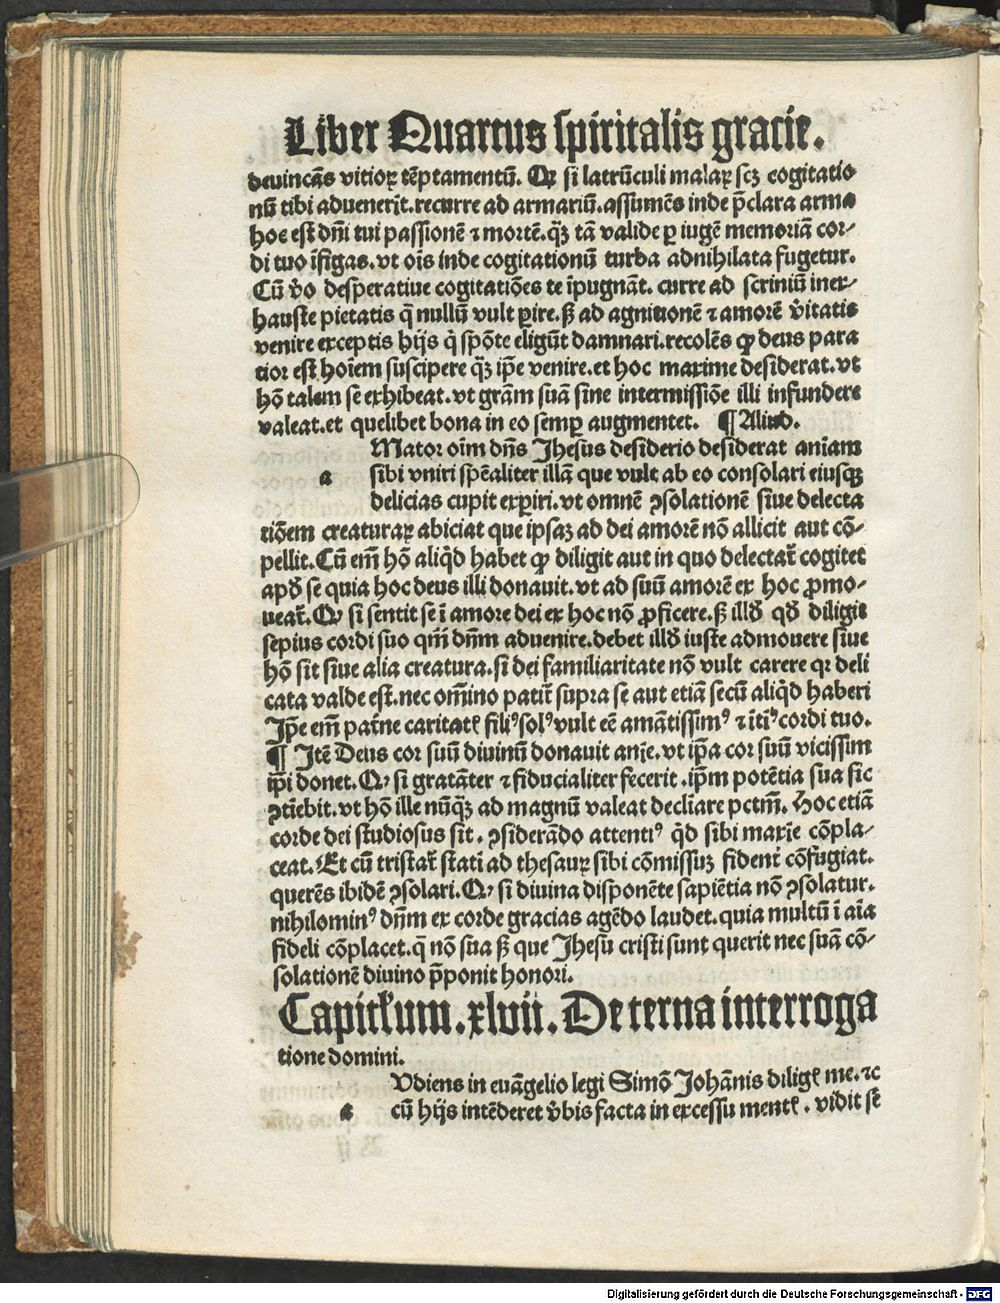 Liber Quartus spiritalis gracie.
deuincẽs vitioꝝ tẽptamentũ. Qꝛ si latrũculi malaꝝ scꝫ cogitatio
nũ tibi aduenerĩt.recurre ad armariũ.assumẽs inde p̃clara arma
hoc est dñi tui passionẽ ⁊ mortẽ.qᷓꝫ tã valide ꝑ iugẽ memoriã cor-
di tuo ĩfigas.vt oĩs inde cogitationũ turba adnihilata fugetur.
Cũ v̾o desperatiue cogitatiões te ĩpugnãt. curre ad scriniũ inex-
hauste pietatis q̃ nullũ vult ꝑire.ß ad agnitionẽ ⁊ amorẽ v̾itatis
venire exceptis hijs q̇ spõte eligũt damnari.recolẽs ꝙ deus para
tior est hoĩem suscipere qᷓꝫ ip̃e venire.et hoc maxime desiderat.vt
hõ talem se exhibeat.vt gr̃am suã sine intermissiõe illi infundere
valeat.et quelibet bona in eo semꝑ augmentet. ¶ Aliud.
Mator oĩm dñs Jhesus desiderio desiderat aniam
a sibi vniri spẽaliter illã que vult ab eo consolari eiusqꝫ
delicias cupit exꝑiri.vt omnẽ ꝯsolationẽ siue delecta
tiõem creaturaꝝ abiciat que ipsaꝫ ad dei amorẽ nõ allicit aut cõ-
pellit.Cũ em̃ hõ aliqd̾ habet ꝙ diligit aut in quo delectat᷑ cogitet
apd̾ se quia hoc deus illi donauit.vt ad suũ amorẽ ex hoc ꝓmo-
ueat᷑.Qꝛ si sentit se ĩ amore dei ex hoc nõ ꝓficere.ß illd̾ qd̾ diligit
sepius cordi suo qm̃ dñm aduenire.debet illd̾ iuste admouere siue
hõ sit siue alia creatura.si dei familiaritate nõ vult carere qꝛ deli
cata valde est.nec om̃ino patit᷑ supra se aut etiã secũ aliqd̾ haberi
Jp̃e em̃ pat̾ne caritatꝭ filiꝰ solꝰ vult eẽ amãtissimꝰ ⁊ ĩtĩꝰ cordi tuo.
¶ Jtẽ Deus cor suũ diuinũ donauit anĩe.vt ip̃a cor suũ vicissim
ip̃i donet.Qꝛ si gratãter ⁊ fiducialiter fecerit .ip̃m potẽtia sua sic
ꝯtĩebit.vt hõ ille nũqᷓꝫ ad magnũ valeat declĩare pctm̃. Hoc etiã
corde dei studiosus sit. ꝯsiderãdo attentiꝰ qd̾ sibi maxĩe cõpla-
ceat.Et cũ tristat᷑ stati ad thesauꝝ sibi cõmissuꝫ fident᷑ cõfugiat.
querẽs ibidẽ ꝯsolari.Qꝛ si diuina disponẽte sapiẽtia nõ ꝯsolatur.
nihilominꝰ dñm ex corde gracias agẽdo laudet.quia multũ ĩ aĩa
fideli cõplacet.q̃ nõ sua ß que Jhesu cristi sunt querit nec suã cõ-
solationẽ diuino p̃ponit honori.
Capitłum.xlvii.De terna interroga
tione domini.
Vdiens in euãgelio legi Simõ Johãnis diligꝭ me.⁊c
a cũ hijs intẽderet v̾bis facta in excessu mentꝭ. vidit se
Digitalisierung gefördert durch die Deutsche Forschungsgemeinschaft - DFG